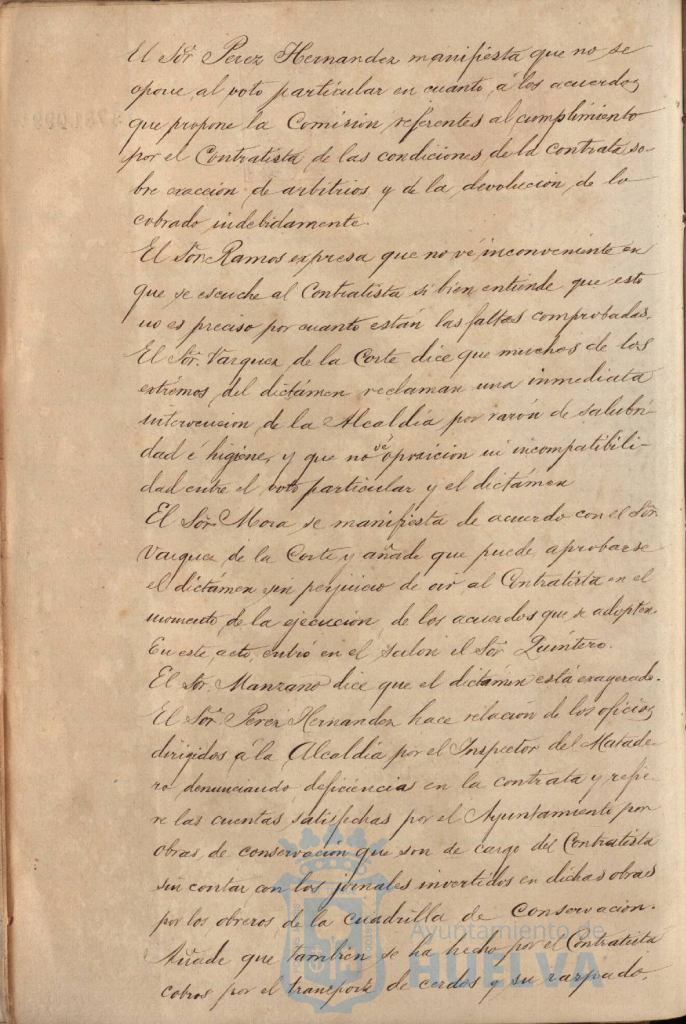 El Sor. Perez Hernandez manifiesta que no se
opone al voto particular en cuanto á los acuerdos
que propone la Comision referentes al cumplimiento
por el Contratista de las condiciones de la contrata so-
bre exacción de arbitrios y de la devolucion de lo
cobrado indebidamente.
El Sor. Ramos expresa que no vé inconveniente en
que se escuche al Contratista si bien entiende que esto
no es preciso por cuanto están las faltas comprobadas.
El Sor. Vazquez de la Corte dice que muchos de los
extremos del dictámen reclaman una inmediata
intervencion de la Alcaldía por razón de salubri-
dad é higiene, y que no vé oposicion ni incompatibili-
dad entre el voto particular y el dictámen
El Sor. Mora se manifiesta de acuerdo con el Sor.
Vazquez de la Corte y añade que puede aprobarse
el dictámen sin perjuicio de oir al Contratista en el
momento de la ejecución de los acuerdos que se adopten.
En este acto entró en el salon el Sor. Quintero.
El Sor. Manzano dice que el dictámen está exagerado.
El Sor. Perez Hernandez hace relación de los oficios
dirigidos á la Alcaldía por el Inspector del Matade-
ro denunciando deficiencias en la contrata y refie-
re las cuentas satisfechas por el Ayuntamiento por
obras de conservación que son de cargo del Contratista
sin contar con los jornales invertidos en dichas obras
por los obreros de la cuadrilla de Conservacion.
Añade que tambien se ha hecho por el Contratista
cobros por el transporte de cerdos y su raspado.
Ayuntamiento de
HUELVA